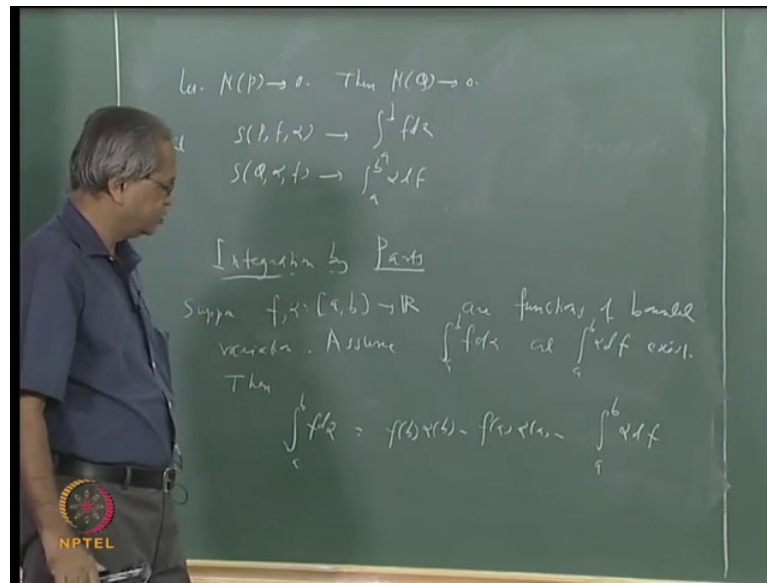 Let μ(P) → 0. Then μ(Q) → 0.
S(P, f, α) → ∫_a^b f dα
S(Q, α, f) → ∫_a^b α df
Integration by Parts
Suppose f, α: [a, b] → ℝ are functions of bounded
variation. Assume ∫_a^b f dα and ∫_a^b α df exist.
Then
∫_a^b f dα = f(b) α(b) - f(a) α(a) - ∫_a^b α df
NPTEL